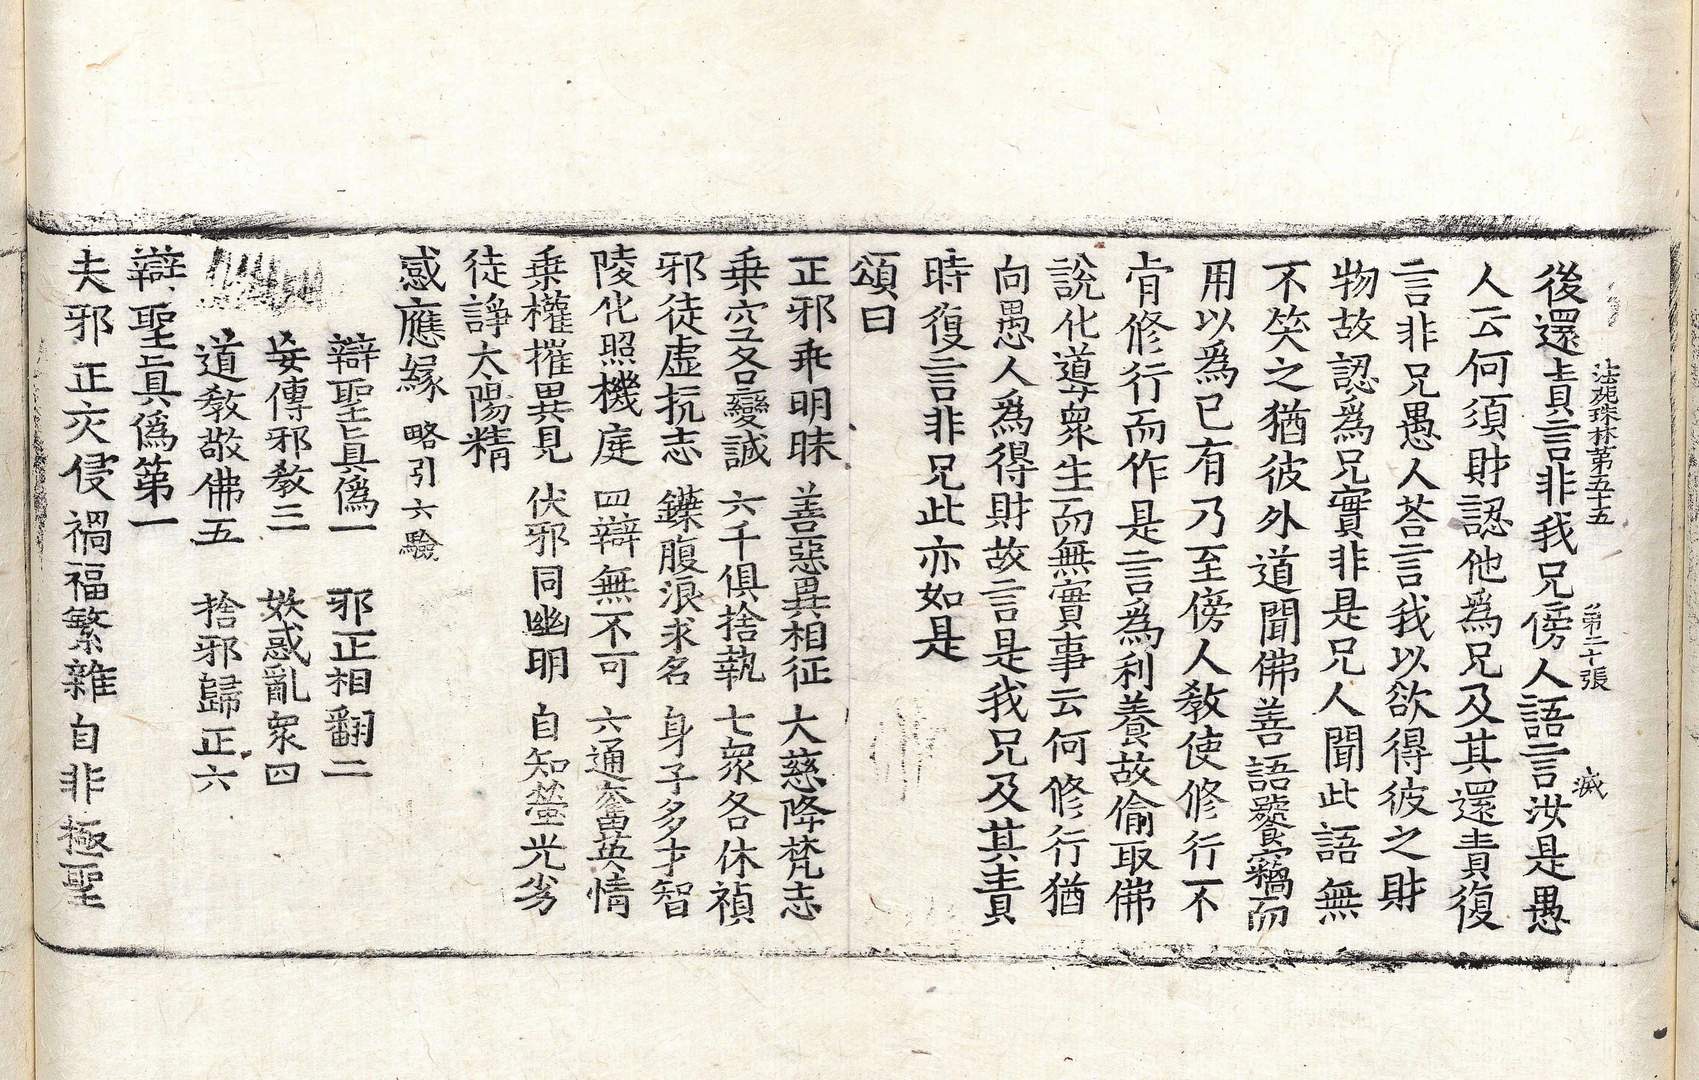 法苑珠林第五十五 第二十張 㓕
後還責言非我兄傍人語言汝是愚
人云何須財認他爲兄及其還責復
言非兄愚人荅言我以欲得彼之財
物故認爲兄實非是兄人聞此語無
不笑之猶彼外道聞佛善語饕竊而
用以爲已有乃至傍人敎使修行不
肯修行而作是言爲利養故偷取佛
說化道導衆生而無實事云何修行猶
向愚人爲得財故言是我兄及其責
時復言非兄此亦如是
頌曰
正邪乖明昧 善惡異相征 大慈降梵志
乗空各變誠 六千俱捨執 七衆各休禎
邪徒虛抗志 鐷腹浪求名 身子多才智
陵化照機庭 四辯無不可 六通奮英情
乗權摧異見 伏邪同幽明 自知螢光劣
徒諍太陽精
感應緣 略引六驗
辯聖眞僞一 邪正相翻二
妄傳邪敎三 妖惑亂衆四
道敎敬佛五 捨邪歸正六
辯聖眞僞第一
夫邪正交侵禍福繁雜自非極聖